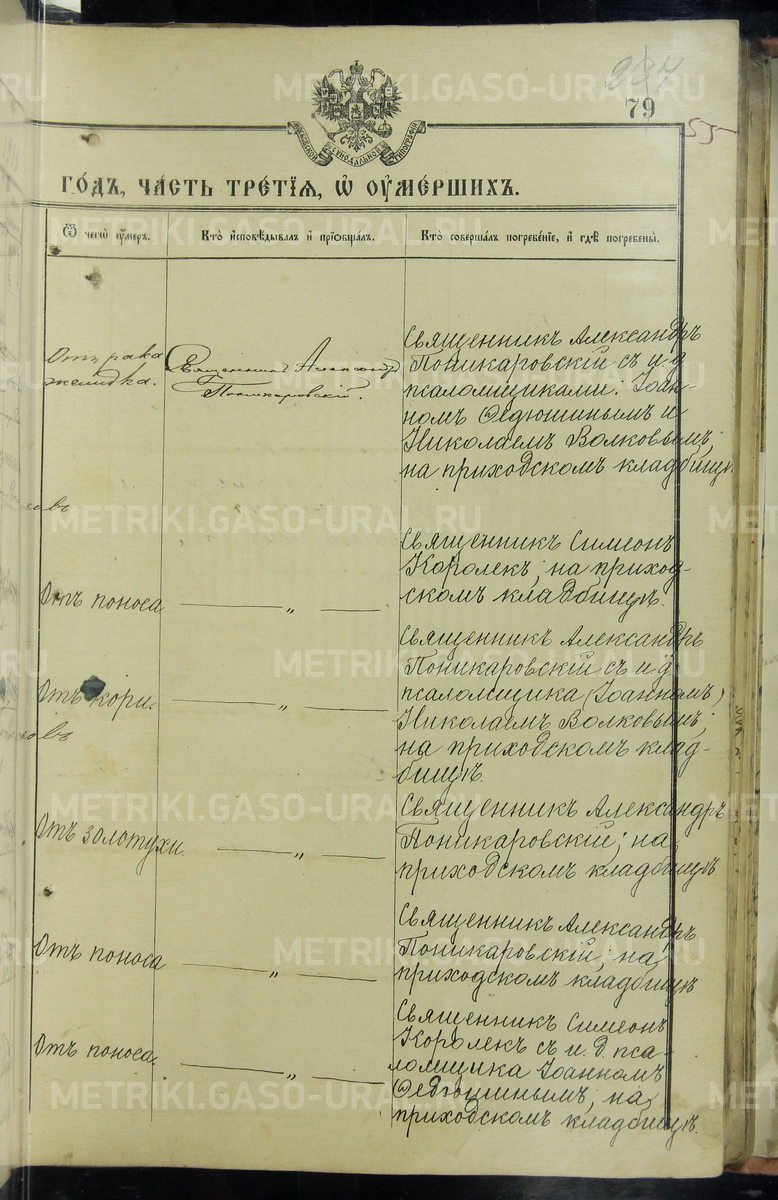 237
79
55
МОСКОВСКОЙ СѴНОДАЛЬНОЙ ТИПОГРАФІИ
ГО́ДЪ, ЧА́СТЬ ТРЕ́ТІѦ, Ѡ҆ ОУ҆МЕ́РШИХЪ.
Ѿ чегѡ̀ ᲂу҆́меръ.
Кто̀ и҆сповѣ́дывалъ и҆ прїѡбща́лъ.
Кто̀ соверша́лъ погребе́нїе, и҆ гдѣ̀ погребены̀.
Отъ рака
желудка.
Священникъ Александръ
Поникаровскій.
Священникъ Александръ
Поникаровскій съ и. д
псаломщиками: Іоан-
номъ Ѳедюшинымъ и
Николаемъ Волковымъ;
на приходскомъ кладбищѣ.
Отъ поноса
— „ —
Священникъ Симеонъ
Королекъ; на приход-
скомъ кладбищѣ.
Отъ кори.
— „ —
Священникъ Александръ
Поникаровскій съ и. д.
псаломщика (Іоанномъ)
Николаемъ Волковымъ;
на приходскомъ клад-
бищѣ.
Отъ золотухи.
— „ —
Священникъ Александръ
Поникаровскій; на
приходскомъ кладбищѣ
Отъ поноса
— „ —
Священникъ Александръ
Поникаровскій; на
приходскомъ кладбищѣ
Отъ поноса.
— „ —
Священникъ Симеонъ
Королекъ съ и. д. пса-
ломщика Іоанномъ
Ѳедюшинымъ; на
приходскомъ кладбищѣ.
METRIKI.GASO-URAL.RU